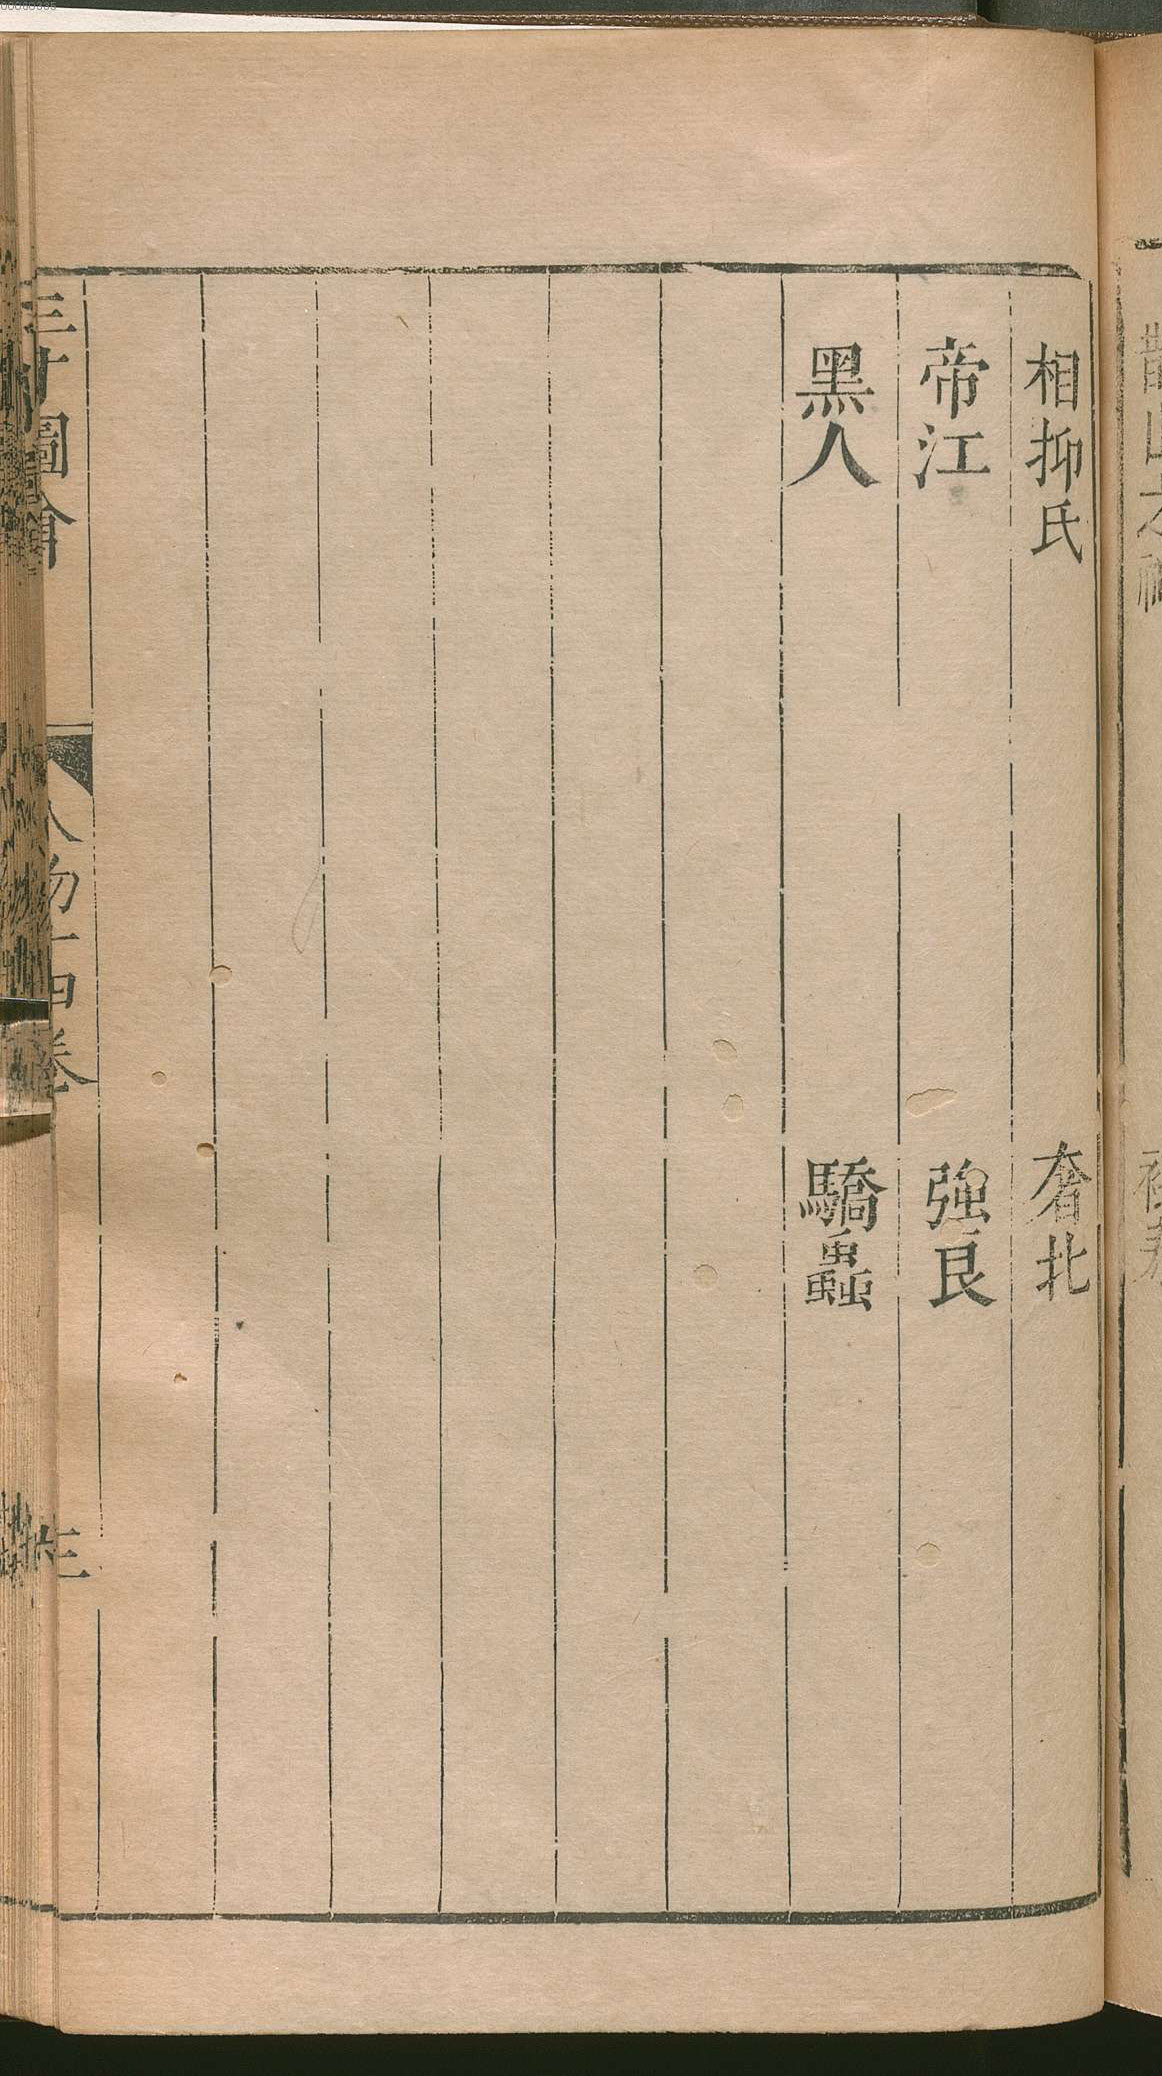 相抑氏 奢北
帝江 強良
黑人 驕蟲
三才圖會 人物十四卷 三
00000335